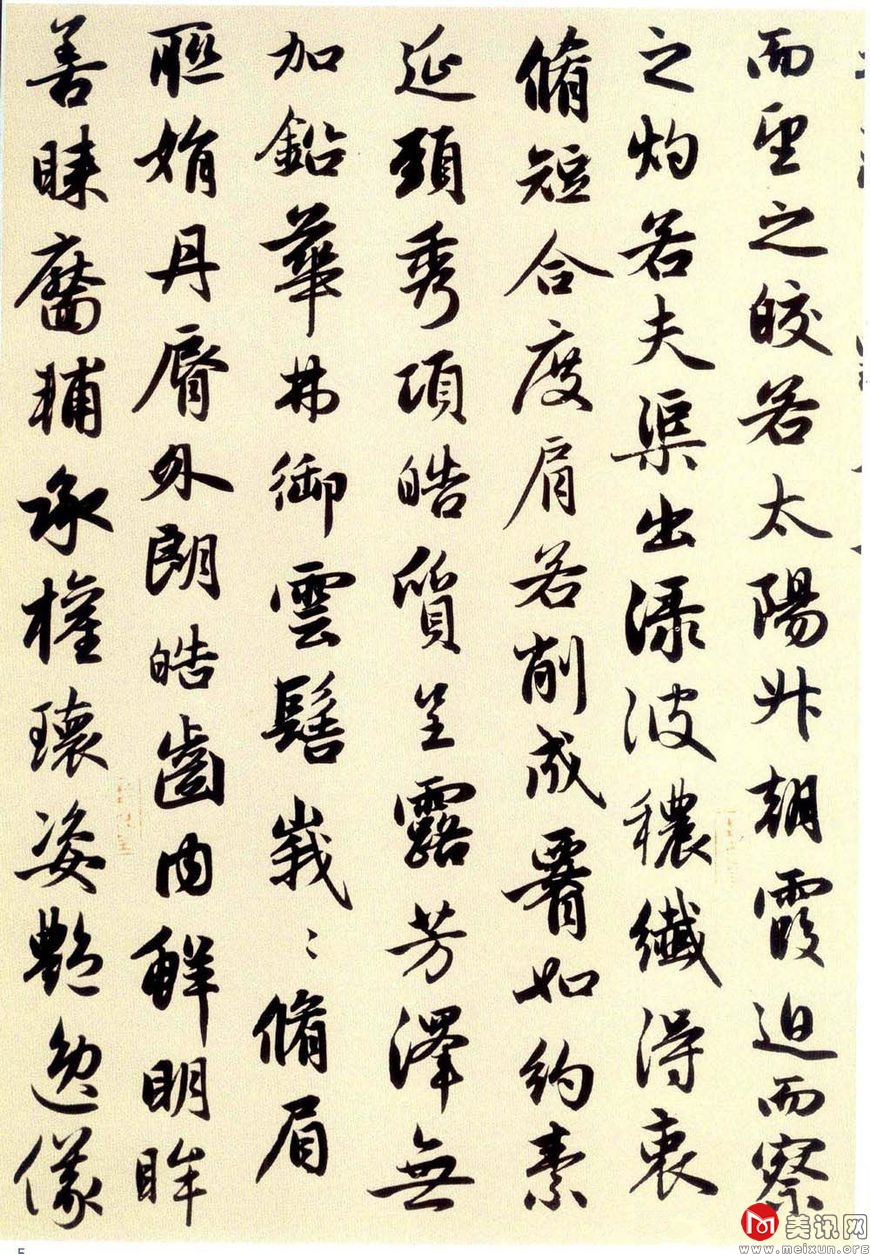 而望之皎若太陽升朝霞迫而察
之灼若夫渠出渌波穠纖得衷
脩短合度肩若削成𦝫如約素
延頸秀項皓質呈露芳澤無
加鉛華弗御雲髻峩〻脩眉
聯娟丹脣外朗皓齒內鮮明眸
善睞靨輔承權瓌姿艷逸儀
5
美讯网
www.meixun.org